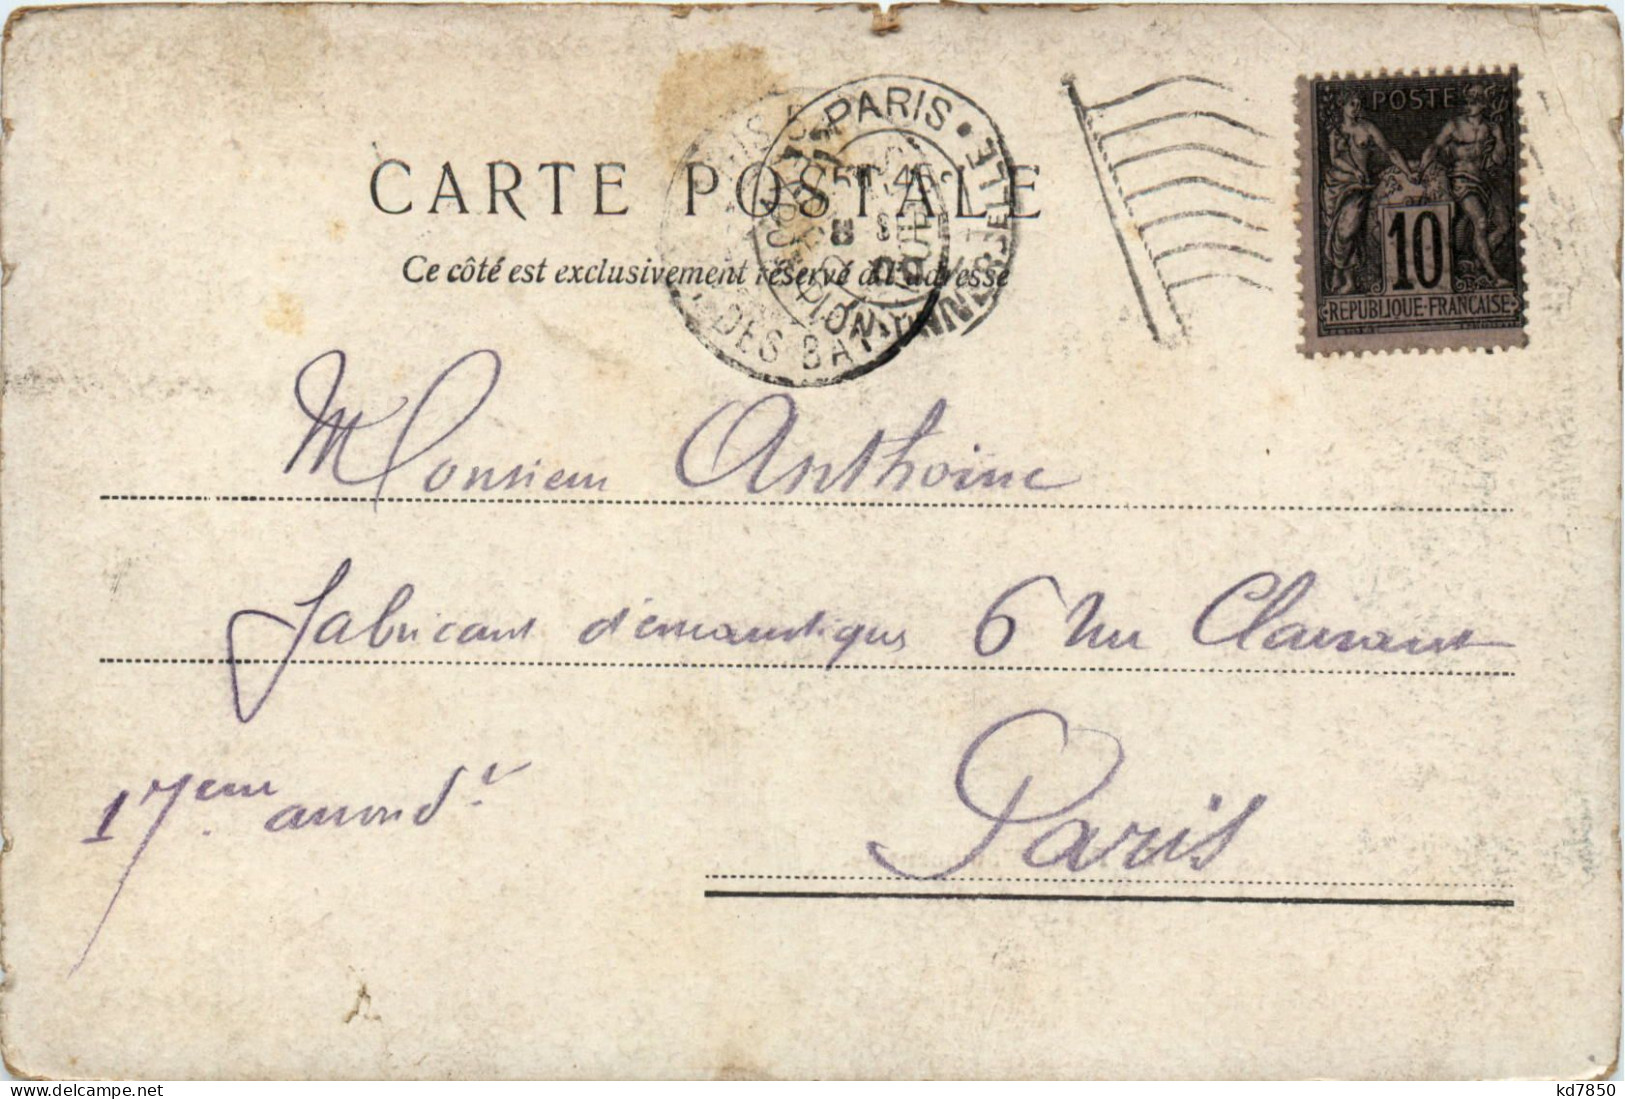 POSTE
10
RÉPUBLIQUE·FRANÇAISE
PARIS
CARTE POSTALE
Ce côté est exclusivement réservé à l'adresse
DES BAT
Monsieur Anthoine
fabricant 6 rue Clairaut
17eme arrondt
Paris
kd7850